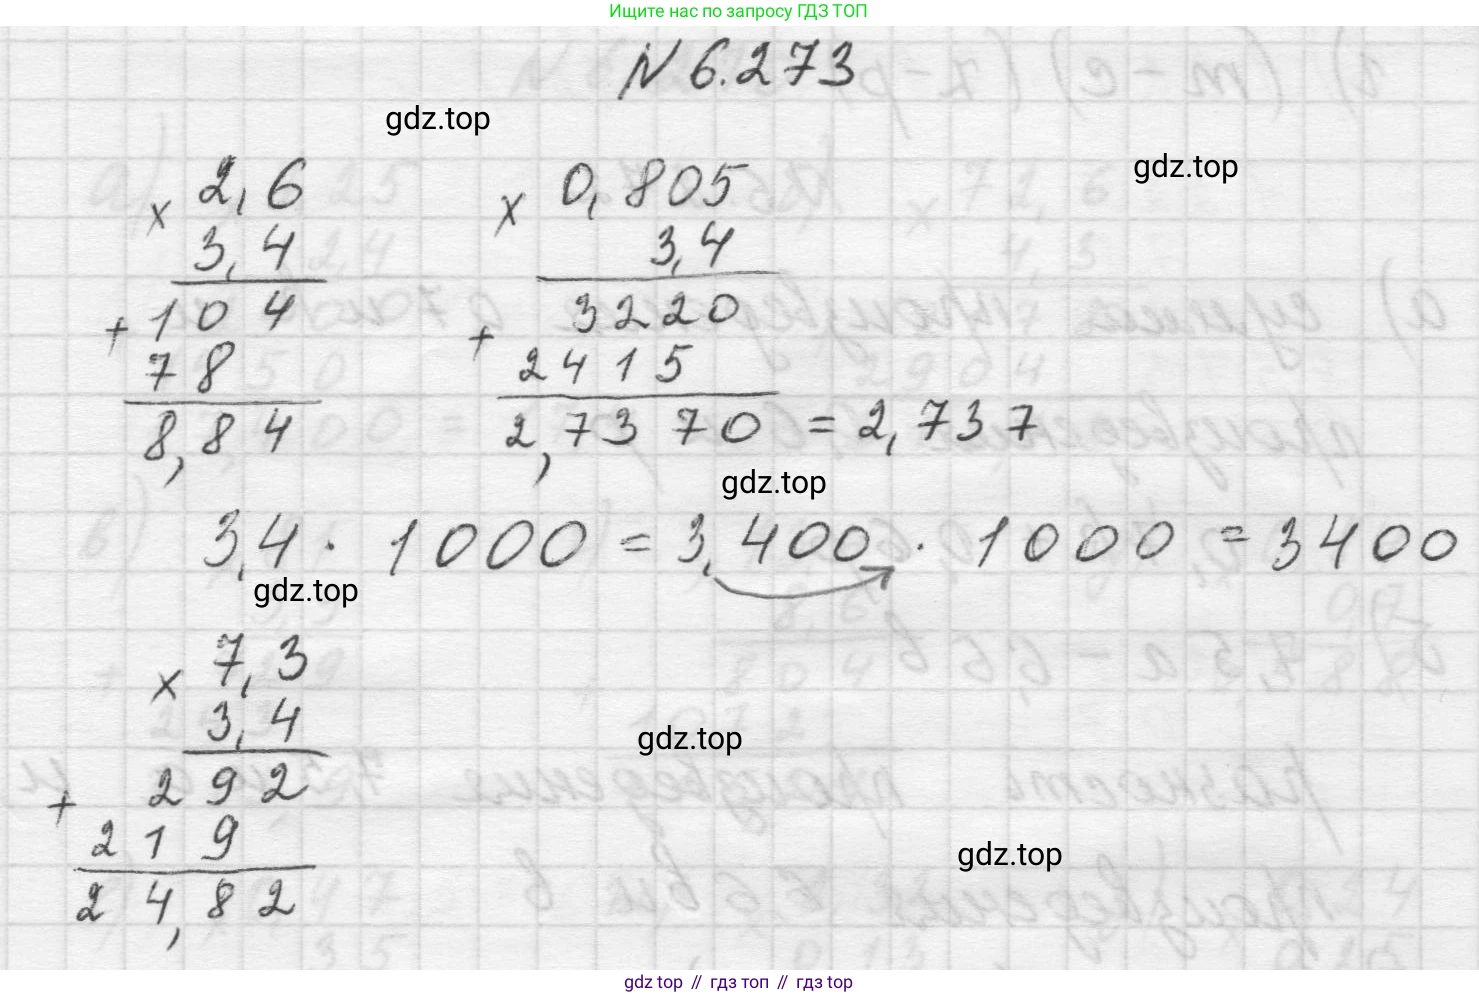 Ищите нас по запросу ГДЗ ТОП
N 6.273
gdz.top
gdz.top
× 2,6
3,4
+ 104
78
8,84
× 0,805
3,4
+ 3220
2415
2,7370 = 2,737
gdz.top
3,4 · 1000 = 3,400 · 1000 = 3400
gdz.top
× 7,3
3,4
+ 292
219
24,82
gdz.top
gdz.top
gdz top // гдз топ // гдз top